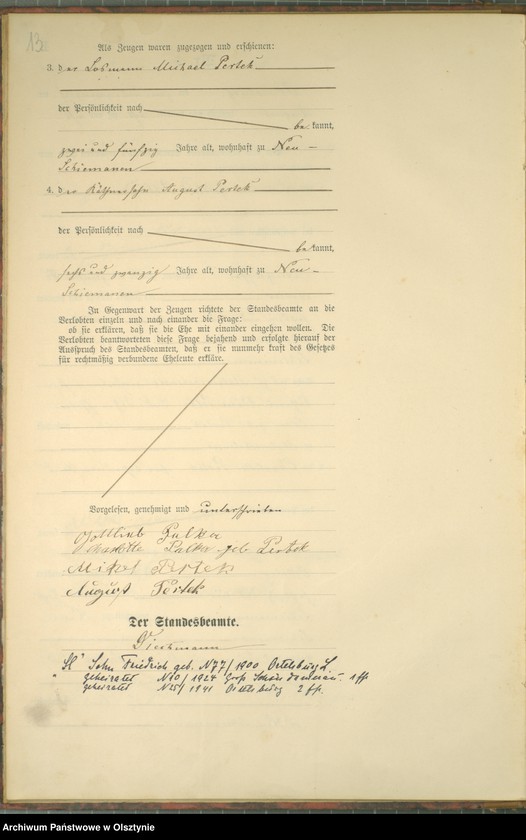 13
Als Zeugen waren zugezogen und erschienen:
3. der Losmann Michael Pertek
der Persönlichkeit nach
be kannt,
zwei und fünfzig Jahre alt, wohnhaft zu Neu-
Schiemanen
4. der Käthnersohn August Pertek
der Persönlichkeit nach
be kannt,
sechs und zwanzig Jahre alt, wohnhaft zu Neu-
Schiemanen
In Gegenwart der Zeugen richtete der Standesbeamte an die
Verlobten einzeln und nach einander die Frage:
ob sie erklären, daß sie die Ehe mit einander eingehen wollen. Die
Verlobten beantworteten diese Frage bejahend und erfolgte hierauf der
Ausspruch des Standesbeamten, daß er sie nunmehr kraft des Gesetzes
für rechtmäßig verbundene Eheleute erkläre.
Vorgelesen, genehmigt und unterschrieben
Gottlieb
Charlotte geb Pertek
Michel Pertek
August Pertek
Der Standesbeamte.
Sohn Friedrich geb. N77/1900 Ortelsburg L.
geheiratet N10/1924 Groß
geheiratet N25/1941 Ortelsburg 2
Archiwum Państwowe w Olsztynie